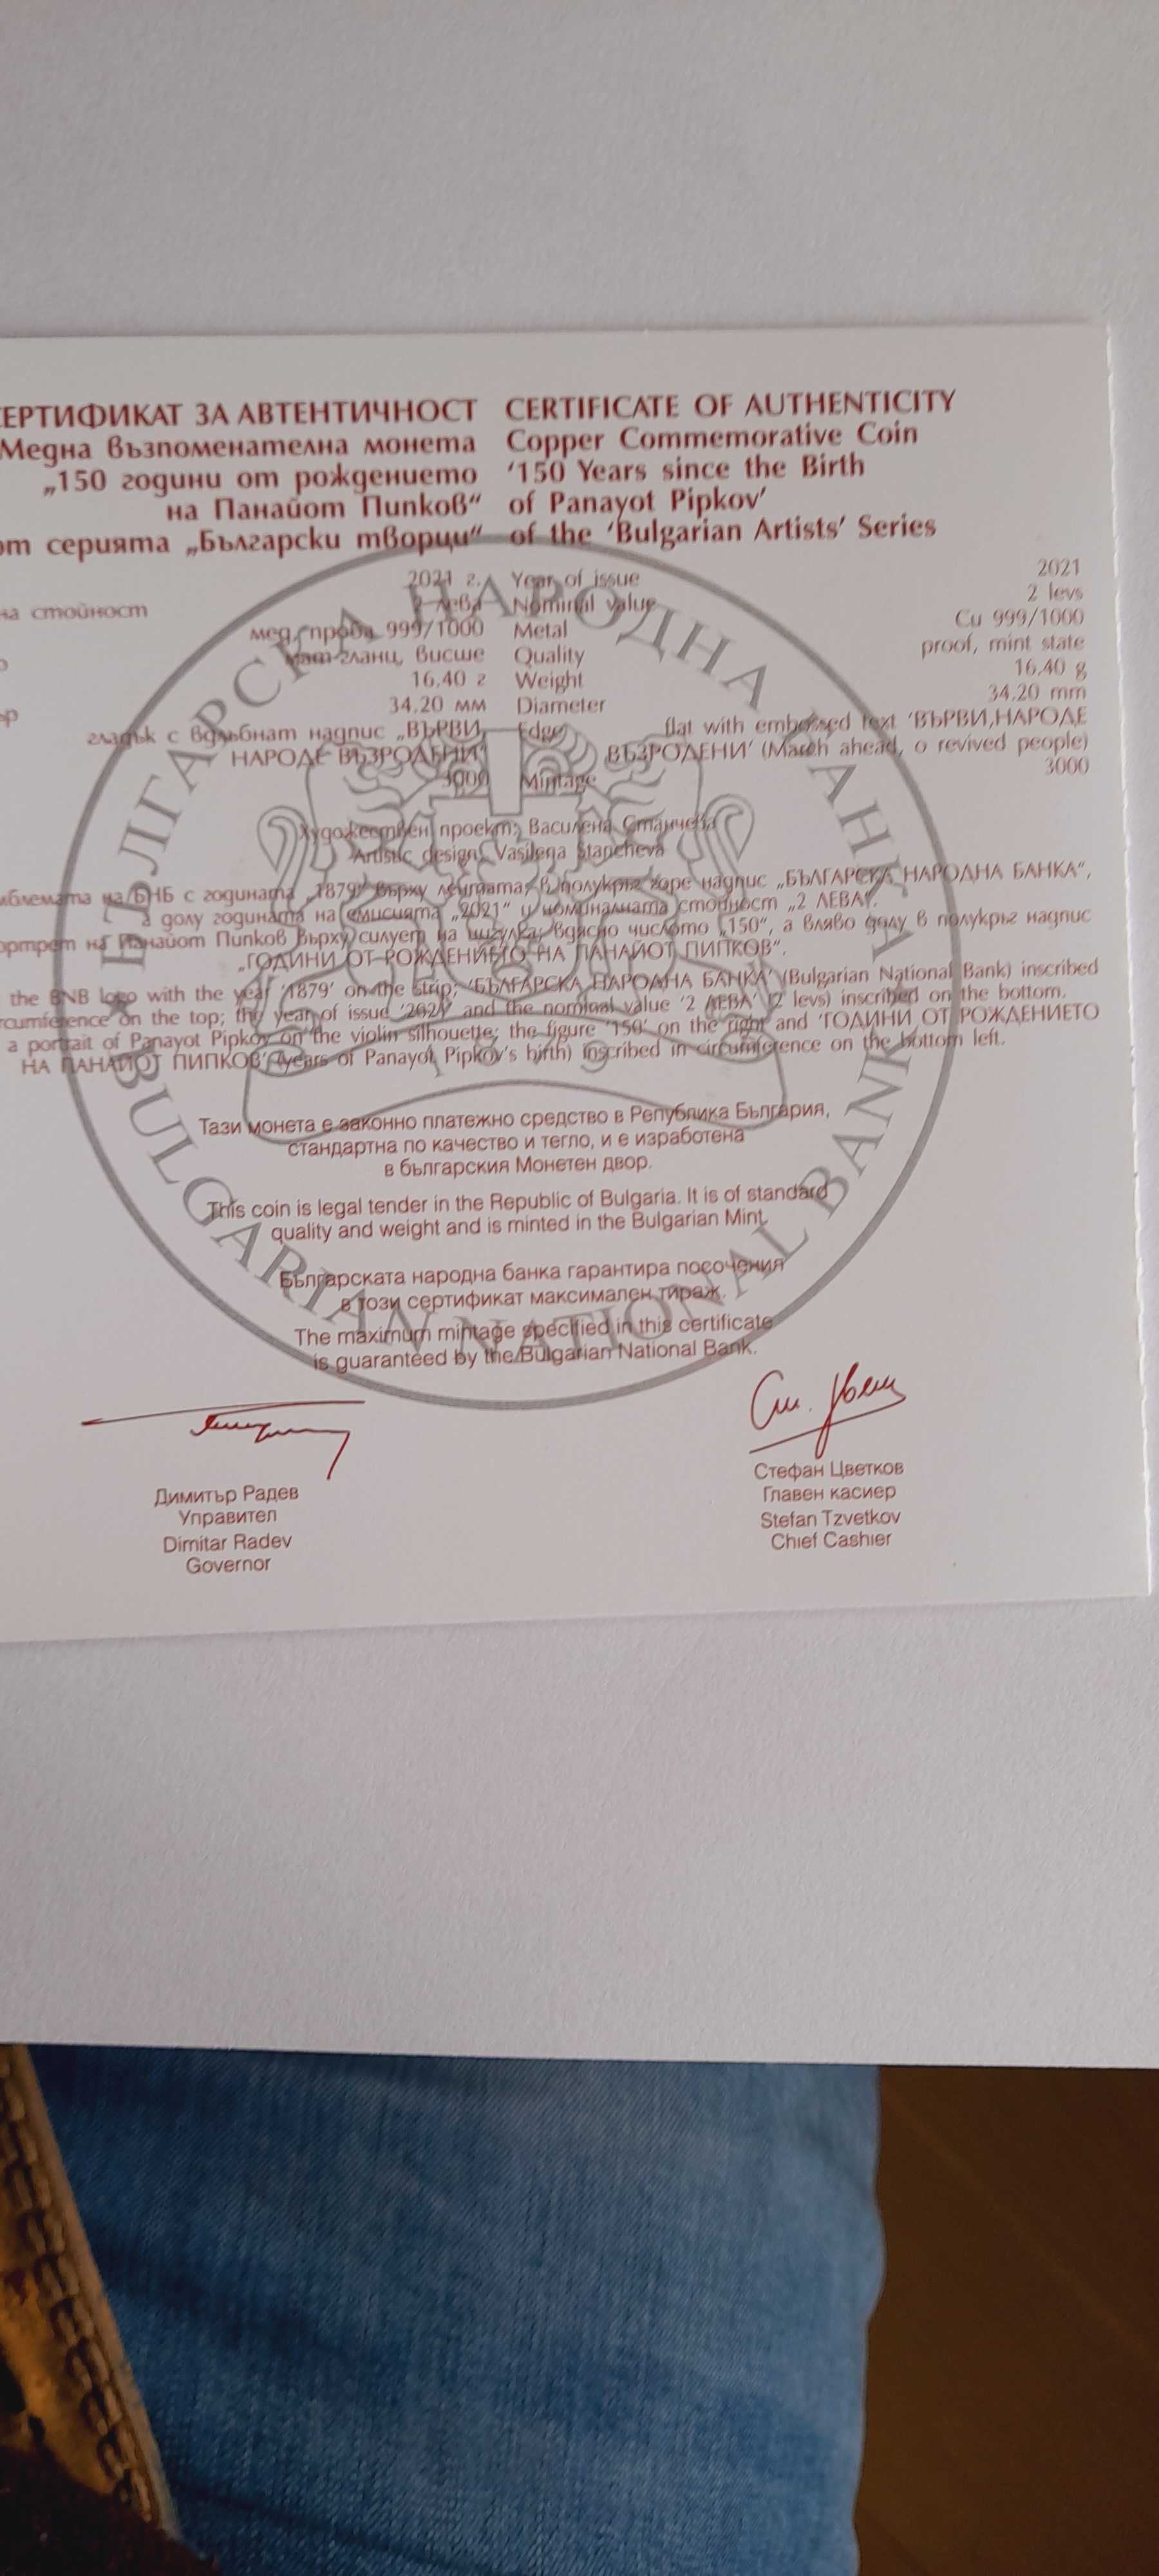 СЕРТИФИКАТ ЗА АВТЕНТИЧНОСТ
Медна възпоменателна монета
„150 години от рождението
на Панайот Пипков“
от серията „Български творци“
CERTIFICATE OF AUTHENTICITY
Copper Commemorative Coin
‘150 Years since the Birth
of Panayot Pipkov’
of the ‘Bulgarian Artists’ Series
2021 г. Year of issue 2021
на стойност 2 лева Nominal value 2 levs
мед, проба 999/1000 Metal Cu 999/1000
мат-гланц, висше Quality proof, mint state
16,40 г Weight 16,40 g
34,20 мм Diameter 34,20 mm
гладък с вдлъбнат надпис „ВЪРВИ, Edge flat with embossed text ‘ВЪРВИ,НАРОДЕ
НАРОДЕ ВЪЗРОДЕНИ“ ВЪЗРОДЕНИ’ (March ahead, o revived people)
3000 Mintage 3000
Художествен проект: Василена Станчева
Artistic design: Vasilena Stancheva
на БНБ с годината „1879“ върху лентата; в полукръг горе надпис „БЪЛГАРСКА НАРОДНА БАНКА“,
а долу годината на емисията „2021“ и номиналната стойност „2 ЛЕВА“.
на Панайот Пипков върху силует на цигулка; вдясно числото „150“, а вляво долу в полукръг надпис
„ГОДИНИ ОТ РОЖДЕНИЕТО НА ПАНАЙОТ ПИПКОВ“.
the BNB logo with the year ‘1879’ on the strip; ‘БЪЛГАРСКА НАРОДНА БАНКА’ (Bulgarian National Bank) inscribed
circumference on the top; the year of issue ‘2021’ and the nominal value ‘2 ЛЕВА’ (2 levs) inscribed on the bottom.
a portrait of Panayot Pipkov on the violin silhouette; the figure ‘150’ on the right and ‘ГОДИНИ ОТ РОЖДЕНИЕТО
НА ПАНАЙОТ ПИПКОВ’ (years of Panayot Pipkov’s birth) inscribed in circumference on the bottom left.
Тази монета е законно платежно средство в Република България,
стандартна по качество и тегло, и е изработена
в българския Монетен двор.
This coin is legal tender in the Republic of Bulgaria. It is of standard
quality and weight and is minted in the Bulgarian Mint.
Българската народна банка гарантира посочения
в този сертификат максимален тираж.
The maximum mintage specified in this certificate
is guaranteed by the Bulgarian National Bank.
БЪЛГАРСКА НАРОДНА БАНКА
BULGARIAN NATIONAL BANK
1879
Димитър Радев
Управител
Dimitar Radev
Governor
Стефан Цветков
Главен касиер
Stefan Tzvetkov
Chief Cashier